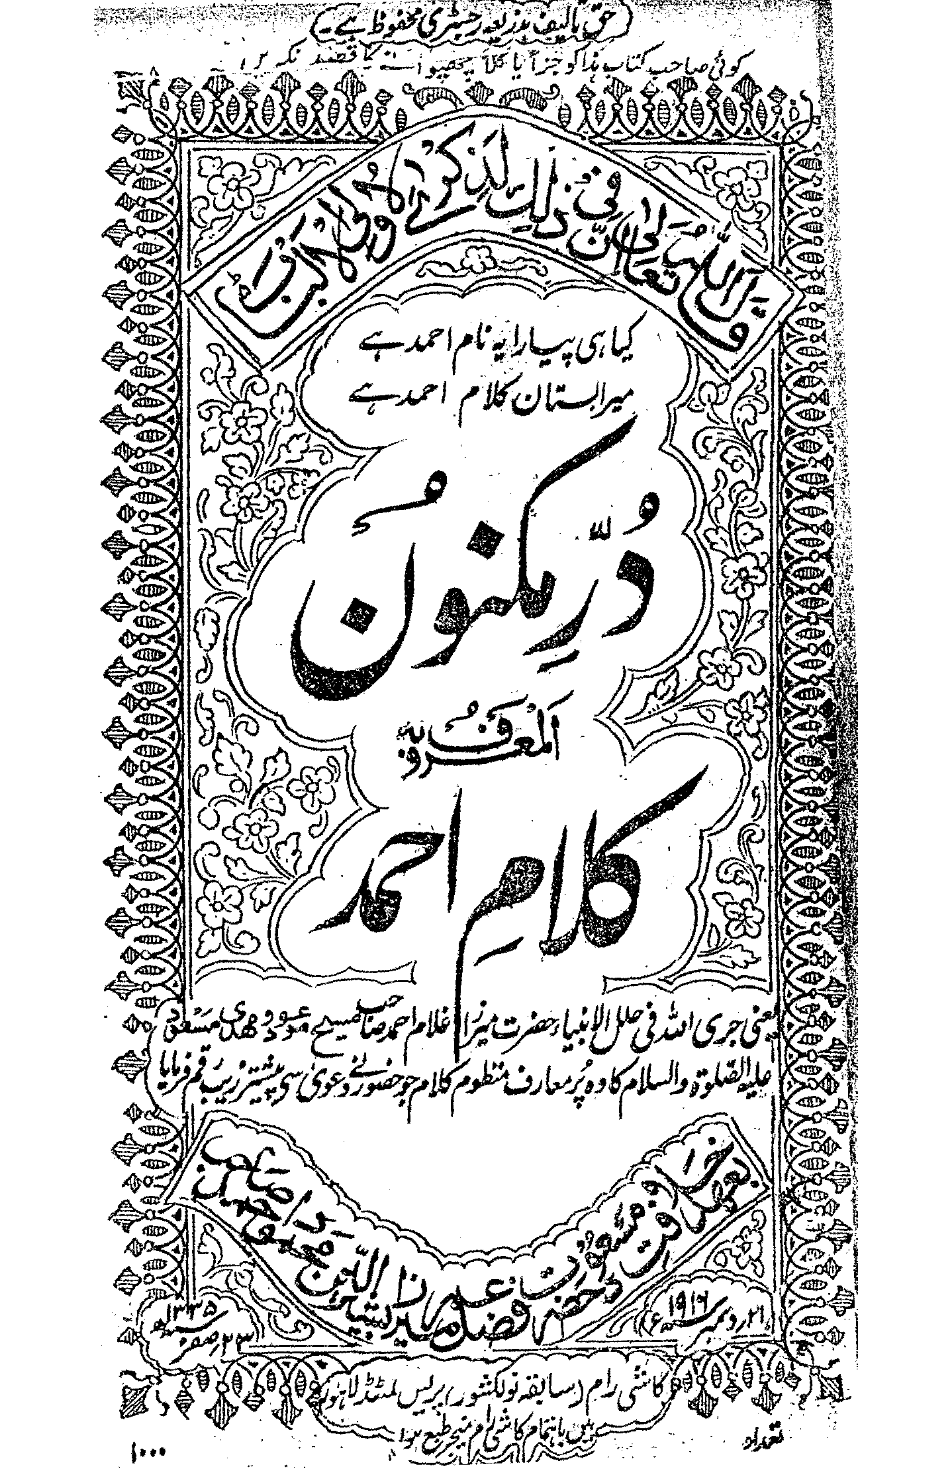 حق تالیف بذریعہ رجسٹری محفوظ ہے۔
کوئی صاحب کتاب ہذا کو جزاً یا کلاً چھپوانے کا قصد نہ کریں
قَالَ اللّٰہُ تَعَالٰی اِنَّ فِیْ ذٰلِکَ لَذِکْرٰی لِاُولِی الْاَلْبَابِ
کیا ہی پیارا یہ نام احمد ہے
میرا بستان کلام احمد ہے
دُرِّ مکنُون
اَلْمَعْرُوْفُ بِہٖ
کلامِ احمد
یعنی جری اللہ فی حلل الانبیاء حضرت میرزا غلام احمد صاحب مسیح موعود و مہدی مسعود
علیہ الصّلوٰۃ والسلام کا وہ پُر معارف منظوم کلام جو حضور نے دعویٰ سی پیشتر زیب رقم فرمایا
بعہد خلافت مسعود حضرت فضل عمر میرزا بشیر الدین محمود احمد صاحب
۲۱ دسمبر ۱۹۱۶ء
۲۵ صفر ۱۳۳۵ھ
کاشی رام (سابقہ نولکشور) پریس لمٹڈ لاہور
میں باہتمام کاشی رام منیجر طبع ہوا
تعداد
۱۰۰۰